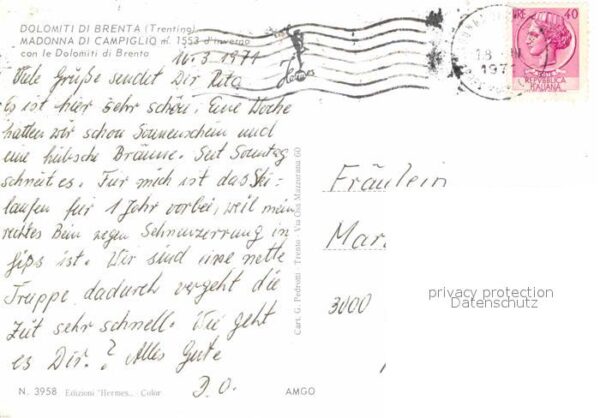 DOLOMITI DI BRENTA (Trentino)
MADONNA DI CAMPIGLIO m. 1553 d'inverno
con le Dolomiti di Brenta
16.3.1971
Viele Grüße sendet Dir Rita
Es ist hier sehr schön. Eine Woche
hatten wir schon Sonnenschein und
eine hübsche Bräune. Seit Sonntag
schneit es. Für mich ist das Ski-
laufen für 1 Jahr vorbei, weil mein
rechtes Bein wegen Sehnenzerrung in
Gips ist. Wir sind eine nette
Truppe dadurch vergeht die
Zeit sehr schnell. Wie geht
es Dir? Alles Gute
D.O.
N. 3958 Edizioni "Hermes" - Color
AMGO
Cart. G. Pedrotti - Trento - Via Gius Mazzurana 60
Hermes
18
197
LIRE 40
REPVBBLICA
ITALIANA
Fräulein
Mar
3000
privacy protection
Datenschutz